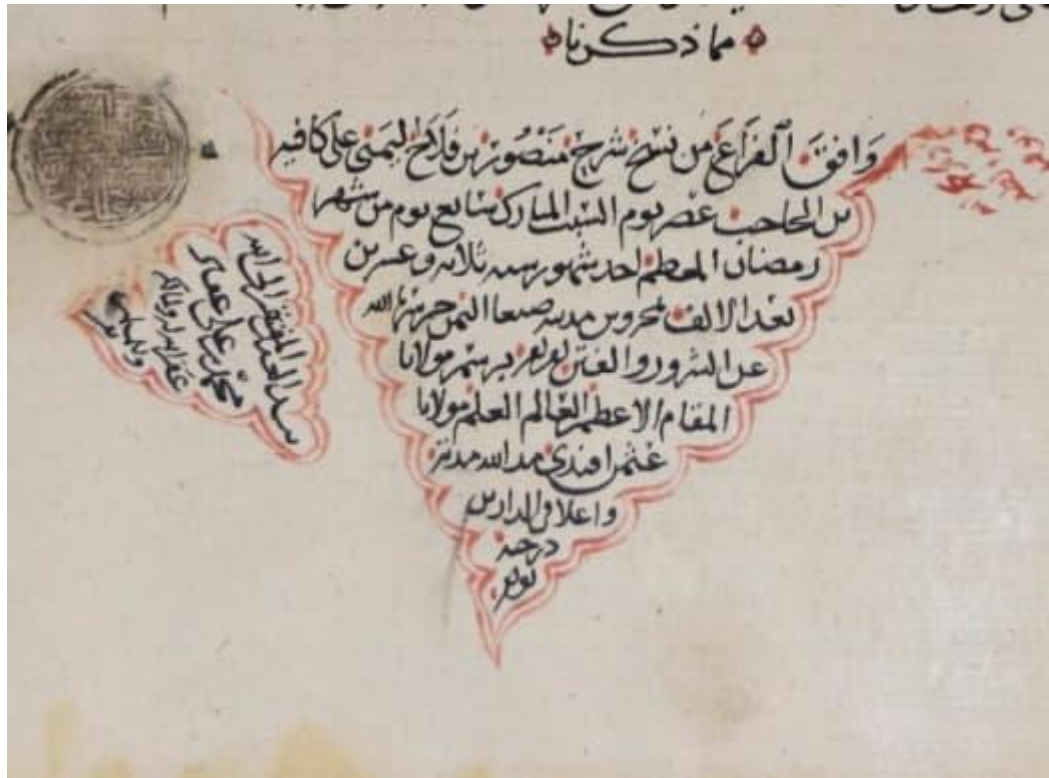 مما ذكرنا
وافق الفراغ من نسخ شرح منصور بن فلاح اليمني على كافيه
بن الحاجب عصر يوم السبت المبارك سابع يوم من شهر
رمضان المعظم احد شهور سنه ثلاثه وعشرين
بعد الالف بمحروس مدينه صنعا اليمن حرسها الله
عن الشرور والفتن برسم مولانا
المقام الاعظم العالم العلم مولانا
عثمن افندي مد الله مدته
واعلا في الدارين
درجته
بيد العبد المفتقر الى الله
محمد بن علي
غفر الله له ولوالديه